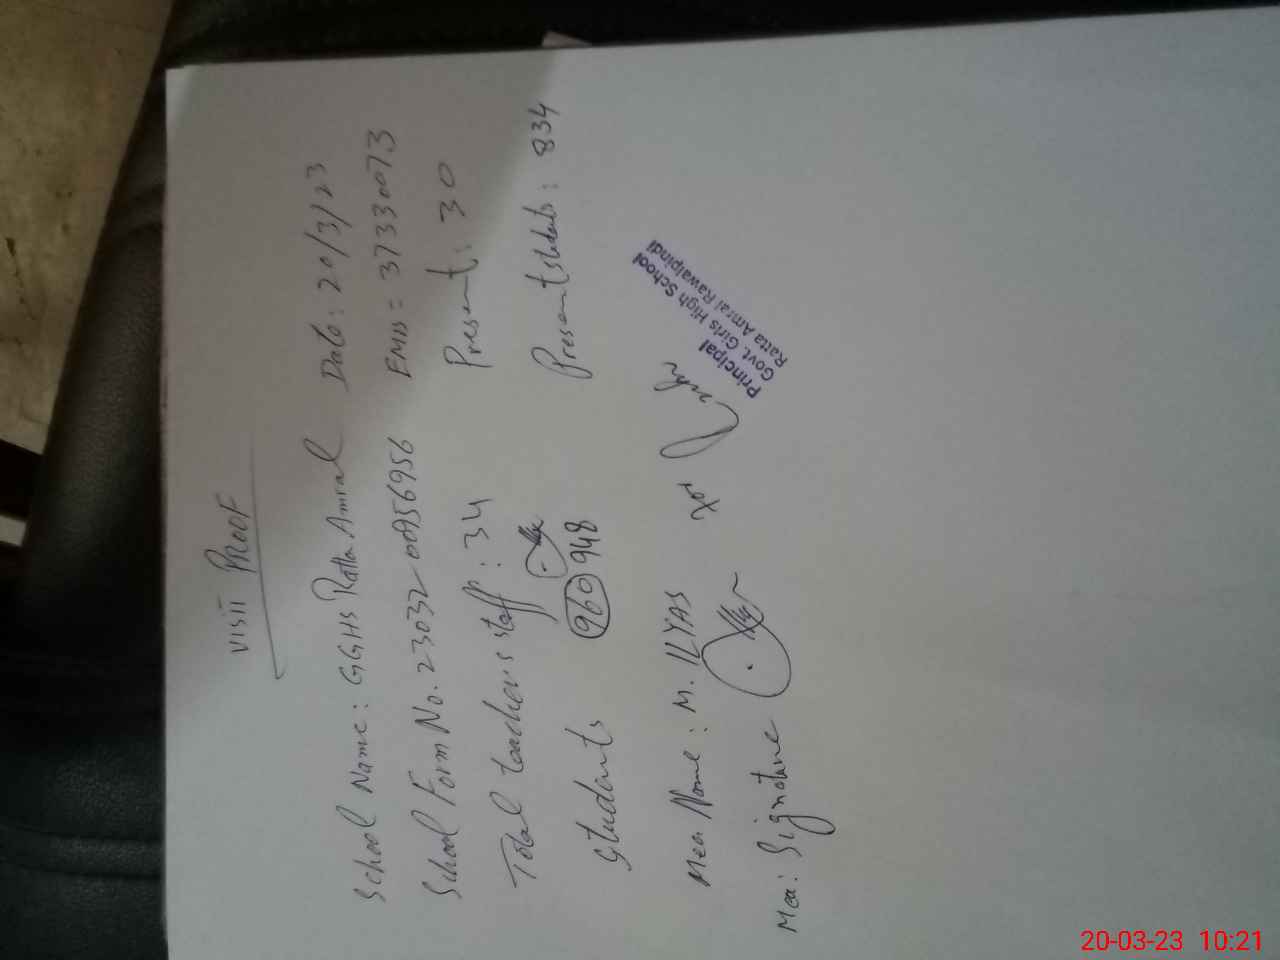 VISIT PROOF
School Name: GGHS Ratta Amral Date: 20/3/23
School Form No. 2303200956956 EMIS = 37330073
Total teachers staff: 34 Present: 30
Students 960 948 Present students: 834
Mea Name: M. ILYAS
Mea: Signature
Principal
Govt. Girls High School
Ratta Amral Rawalpindi
20-03-23 10:21